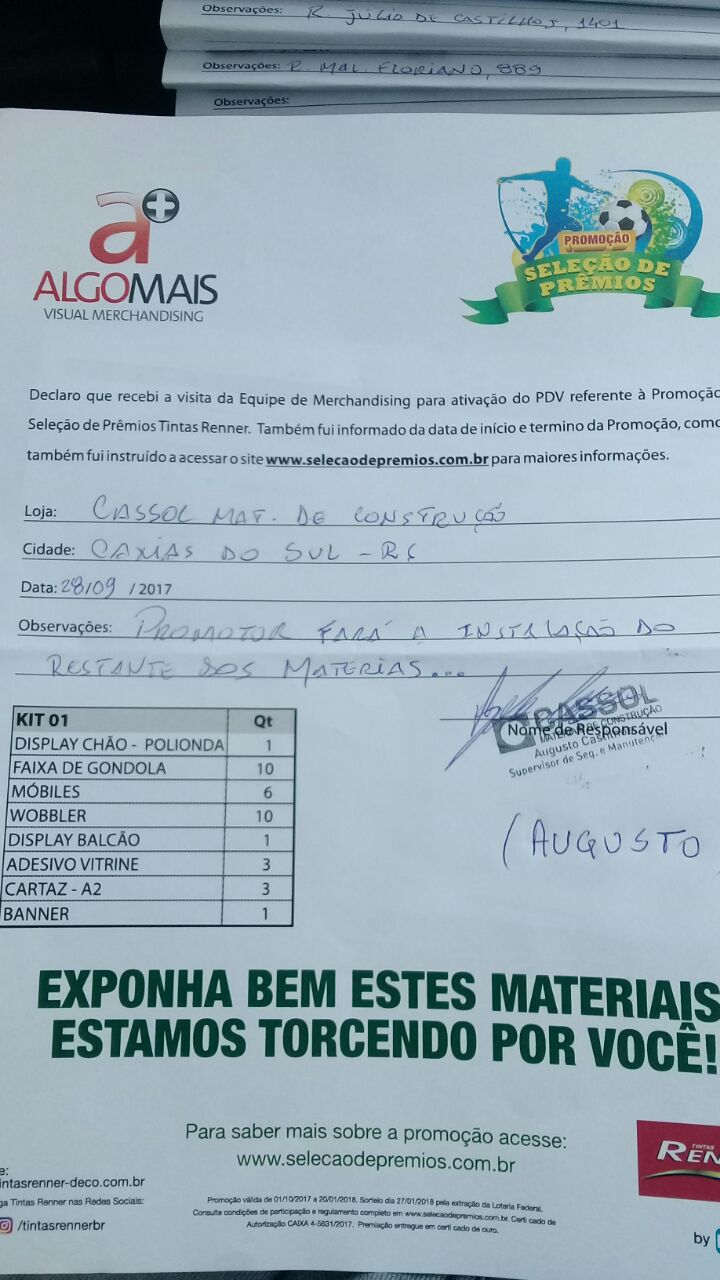 Observações: R. JÚLIO DE CASTILHOS, 1401
Observações: R. MAL. FLORIANO, 889
Observações:
a+
ALGOMAIS
VISUAL MERCHANDISING
PROMOÇÃO
SELEÇÃO DE
PRÊMIOS
Declaro que recebi a visita da Equipe de Merchandising para ativação do PDV referente à Promoção
Seleção de Prêmios Tintas Renner. Também fui informado da data de início e termino da Promoção, como
também fui instruído a acessar o site www.selecaodepremios.com.br para maiores informações.
Loja: CASSOL MAT. DE CONSTRUÇÃO
Cidade: CAXIAS DO SUL - RS
Data: 28/09 / 2017
Observações: PROMOTOR FARÁ A INSTALAÇÃO DO
RESTANTE DOS MATERIAS...
CASSOL
MATERIAIS DE CONSTRUÇÃO
Nome de Responsável
Augusto
Supervisor de Seg. e Manutenção
(AUGUSTO
KIT 01 Qt
DISPLAY CHÃO - POLIONDA 1
FAIXA DE GONDOLA 10
MÓBILES 6
WOBBLER 10
DISPLAY BALCÃO 1
ADESIVO VITRINE 3
CARTAZ - A2 3
BANNER 1
EXPONHA BEM ESTES MATERIAIS
ESTAMOS TORCENDO POR VOCÊ!
Para saber mais sobre a promoção acesse:
www.selecaodepremios.com.br
TINTAS
REN
e:
intasrenner-deco.com.br
ga Tintas Renner nas Redes Sociais:
/tintasrennerbr
Promoção válida de 01/10/2017 a 20/01/2018. Sorteio dia 27/01/2018 pela extração da Loteria Federal.
Consulte condições de participação e regulamento completo em www.selecaodepremios.com.br. Certi cado de
Autorização CAIXA 4-5631/2017. Premiação entregue em certi cado de ouro.
by